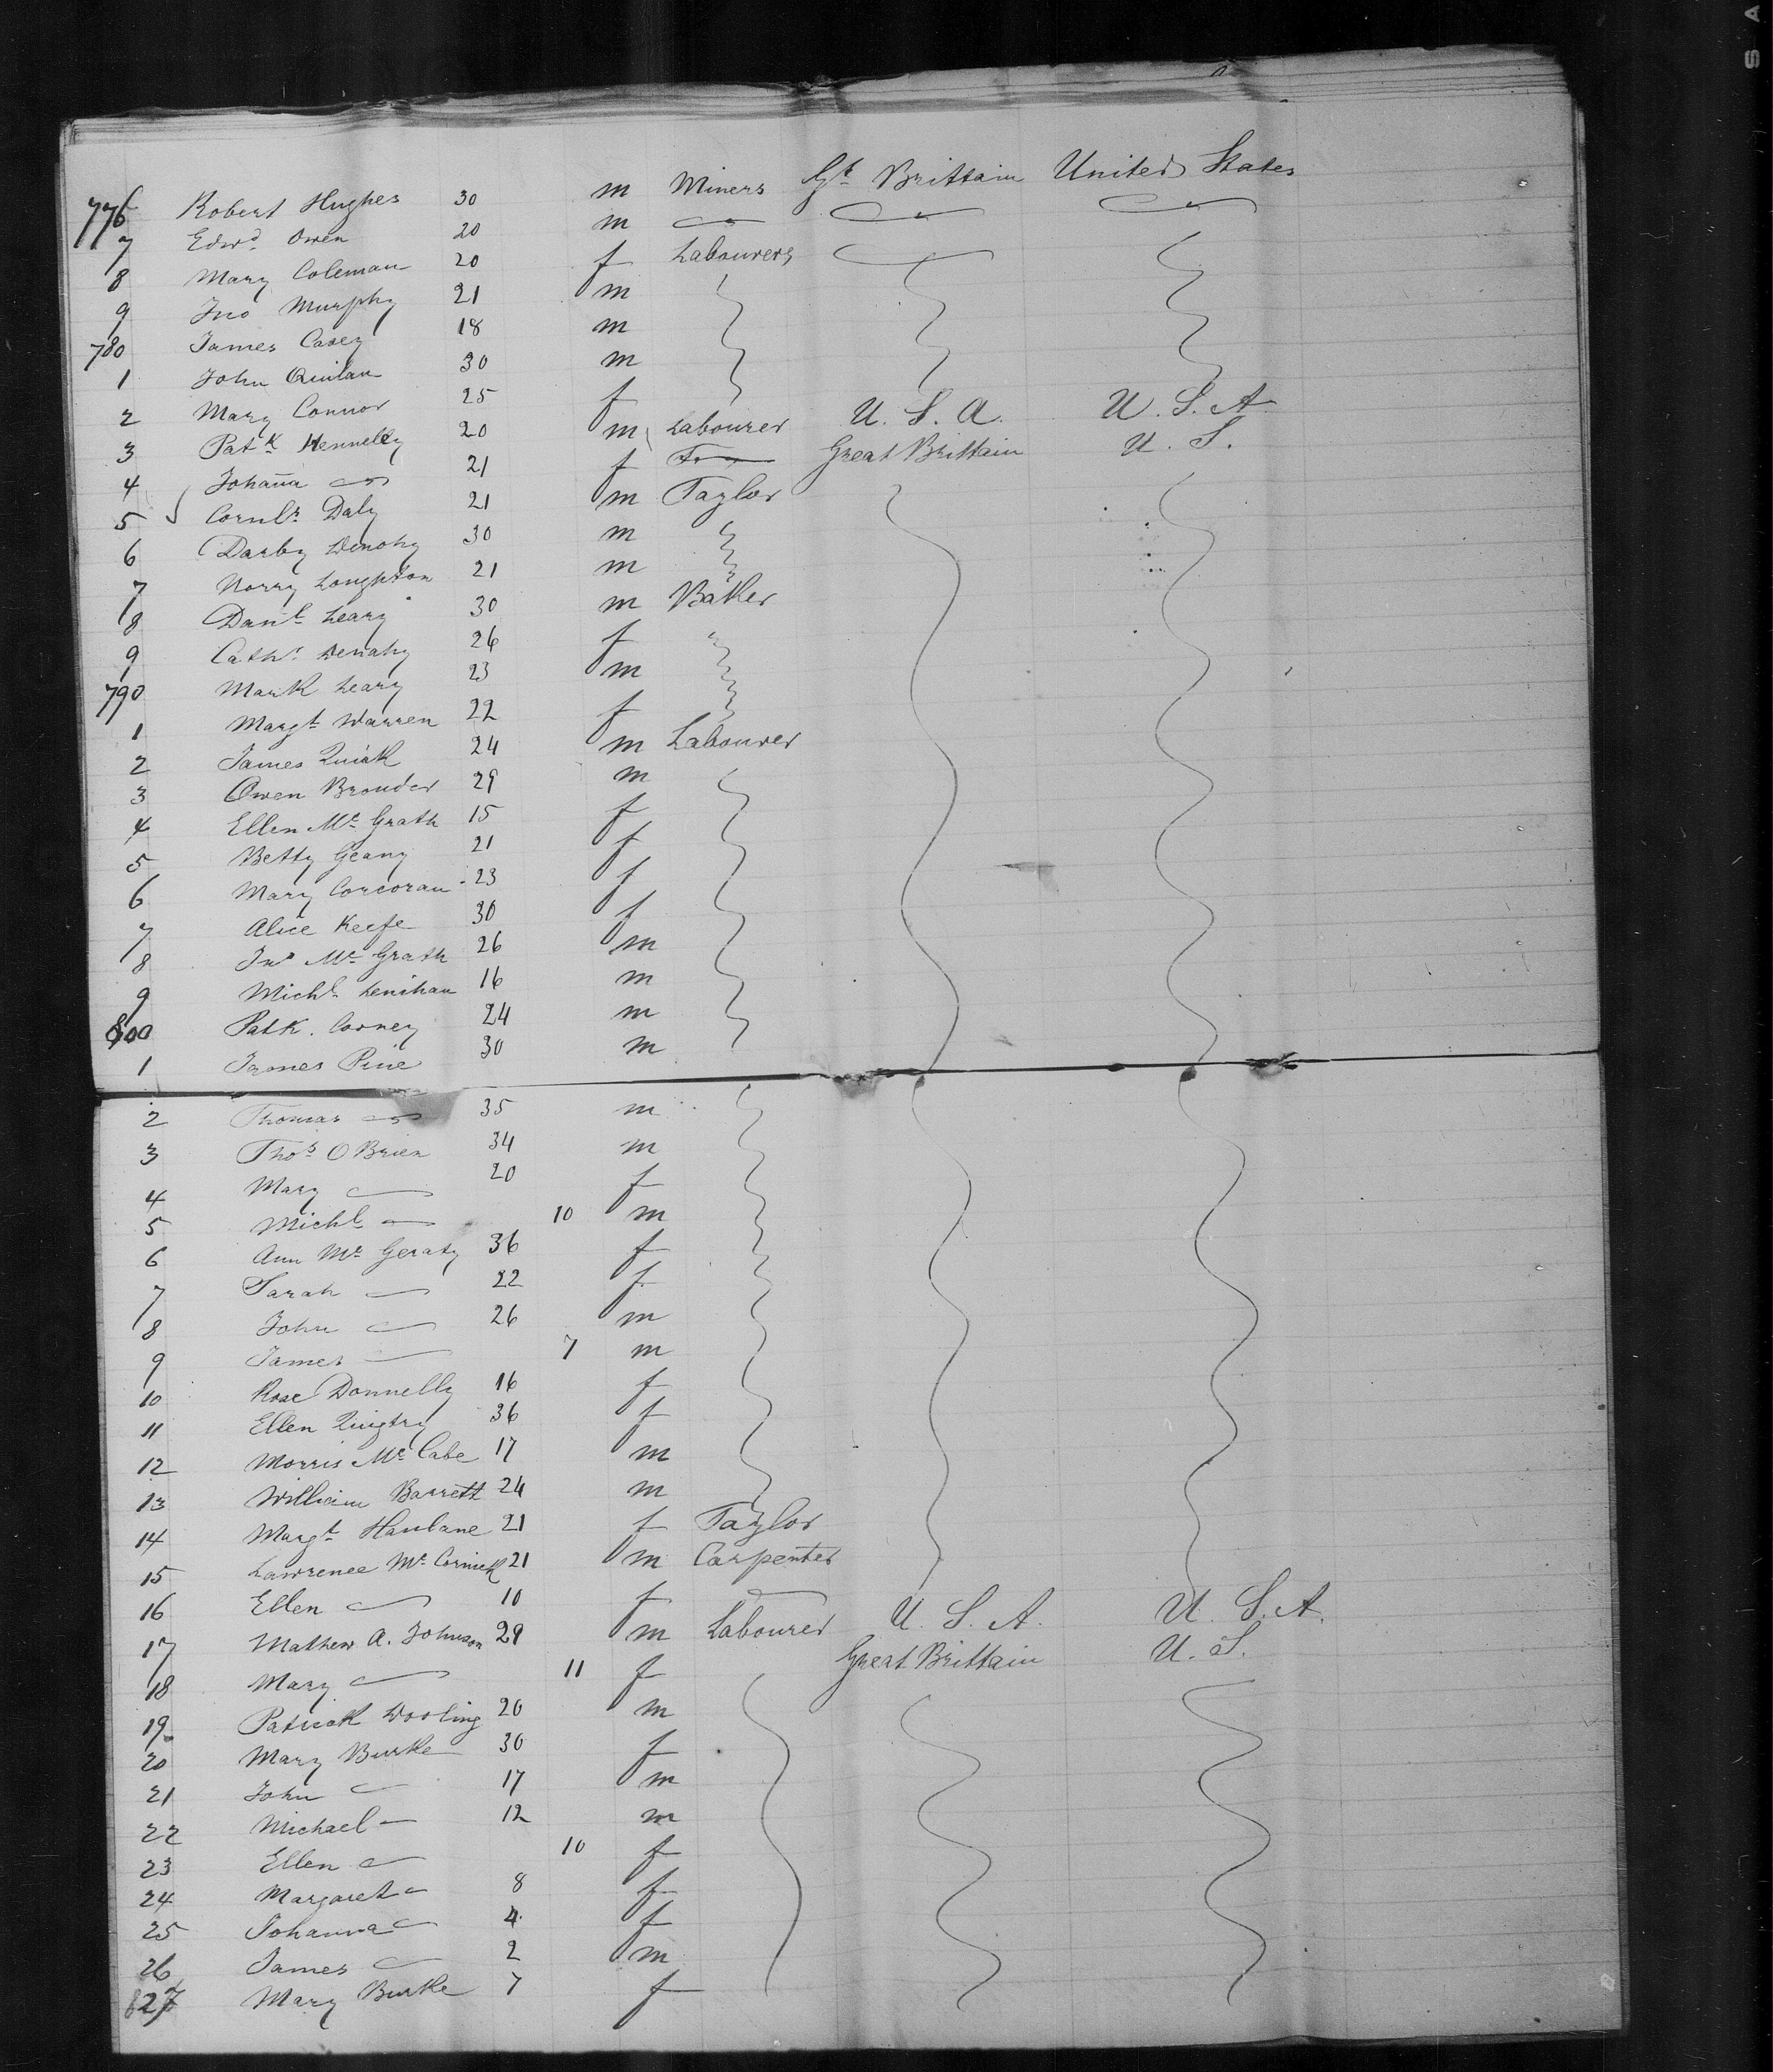 776 Robert Hughes 30 m Miners Gt Brittain United States
7 Edwd Owen 20 m
8 Mary Coleman 20 f Labourers
9 Jno Murphy 21 m
780 James Casey 18 m
1 John Quilan 30 m
2 Mary Connor 25 f
3 Patk Kennelly 20 m Labourer U. S. A. U. S. A
4 Johana 21 f Great Brittain U. S.
5 Cornls Daly 21 m Taylor
6 Darby Denohy 30 m
7 Norry Loughton 21 m
8 Danl Leary 30 m Baker
9 Cathr Denahy 26 f
790 Mark Leary 23 m
1 Margt Warren 22 f
2 James Quiak 24 m Labourer
3 Owen Brouder 29 m
4 Ellen Mc Grath 15 f
5 Betty Geany 21 f
6 Mary Corcoran 23 f
7 Alice Keefe 30 f
8 Jno Mc Grath 26 m
9 Michl Lenihan 16 m
800 Patk. Corney 24 m
1 James Pine 30 m
2 Thomas 35 m
3 Thos O Brien 34 m
4 Mary 20 f
5 Michl 10 m
6 Ann Mc Geraty 36 f
7 Sarah 22 f
8 John 26 m
9 James 7 m
10 Rose Donnelly 16 f
11 Ellen Quigtry 36 f
12 Morris Mc Cabe 17 m
13 William Barrett 24 m
14 Margt Hanlane 21 f Taylor
15 Lawrence Mc Cormick 21 m Carpenter
16 Ellen 10 f
17 Mathew A. Johnson 29 m Labourer U. S. A. U. S. A.
18 Mary 11 f Great Brittain U. S.
19 Patrick Dooling 20 m
20 Mary Burke 30 f
21 John 17 m
22 Michael 12 m
23 Ellen 10 f
24 Margaret 8 f
25 Johanna 4 f
26 James 2 m
827 Mary Burke 7 f